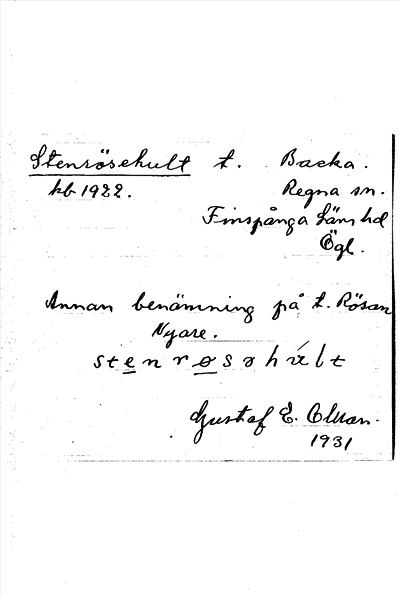 Stensösehult t. Backa.
kb 1922. Regna sn.
Finspånga läns hd
Ögl.
Annan benämning på t. Rösan
Nyare.
stenrøsəhɷ́lt
Gustaf E.
1931